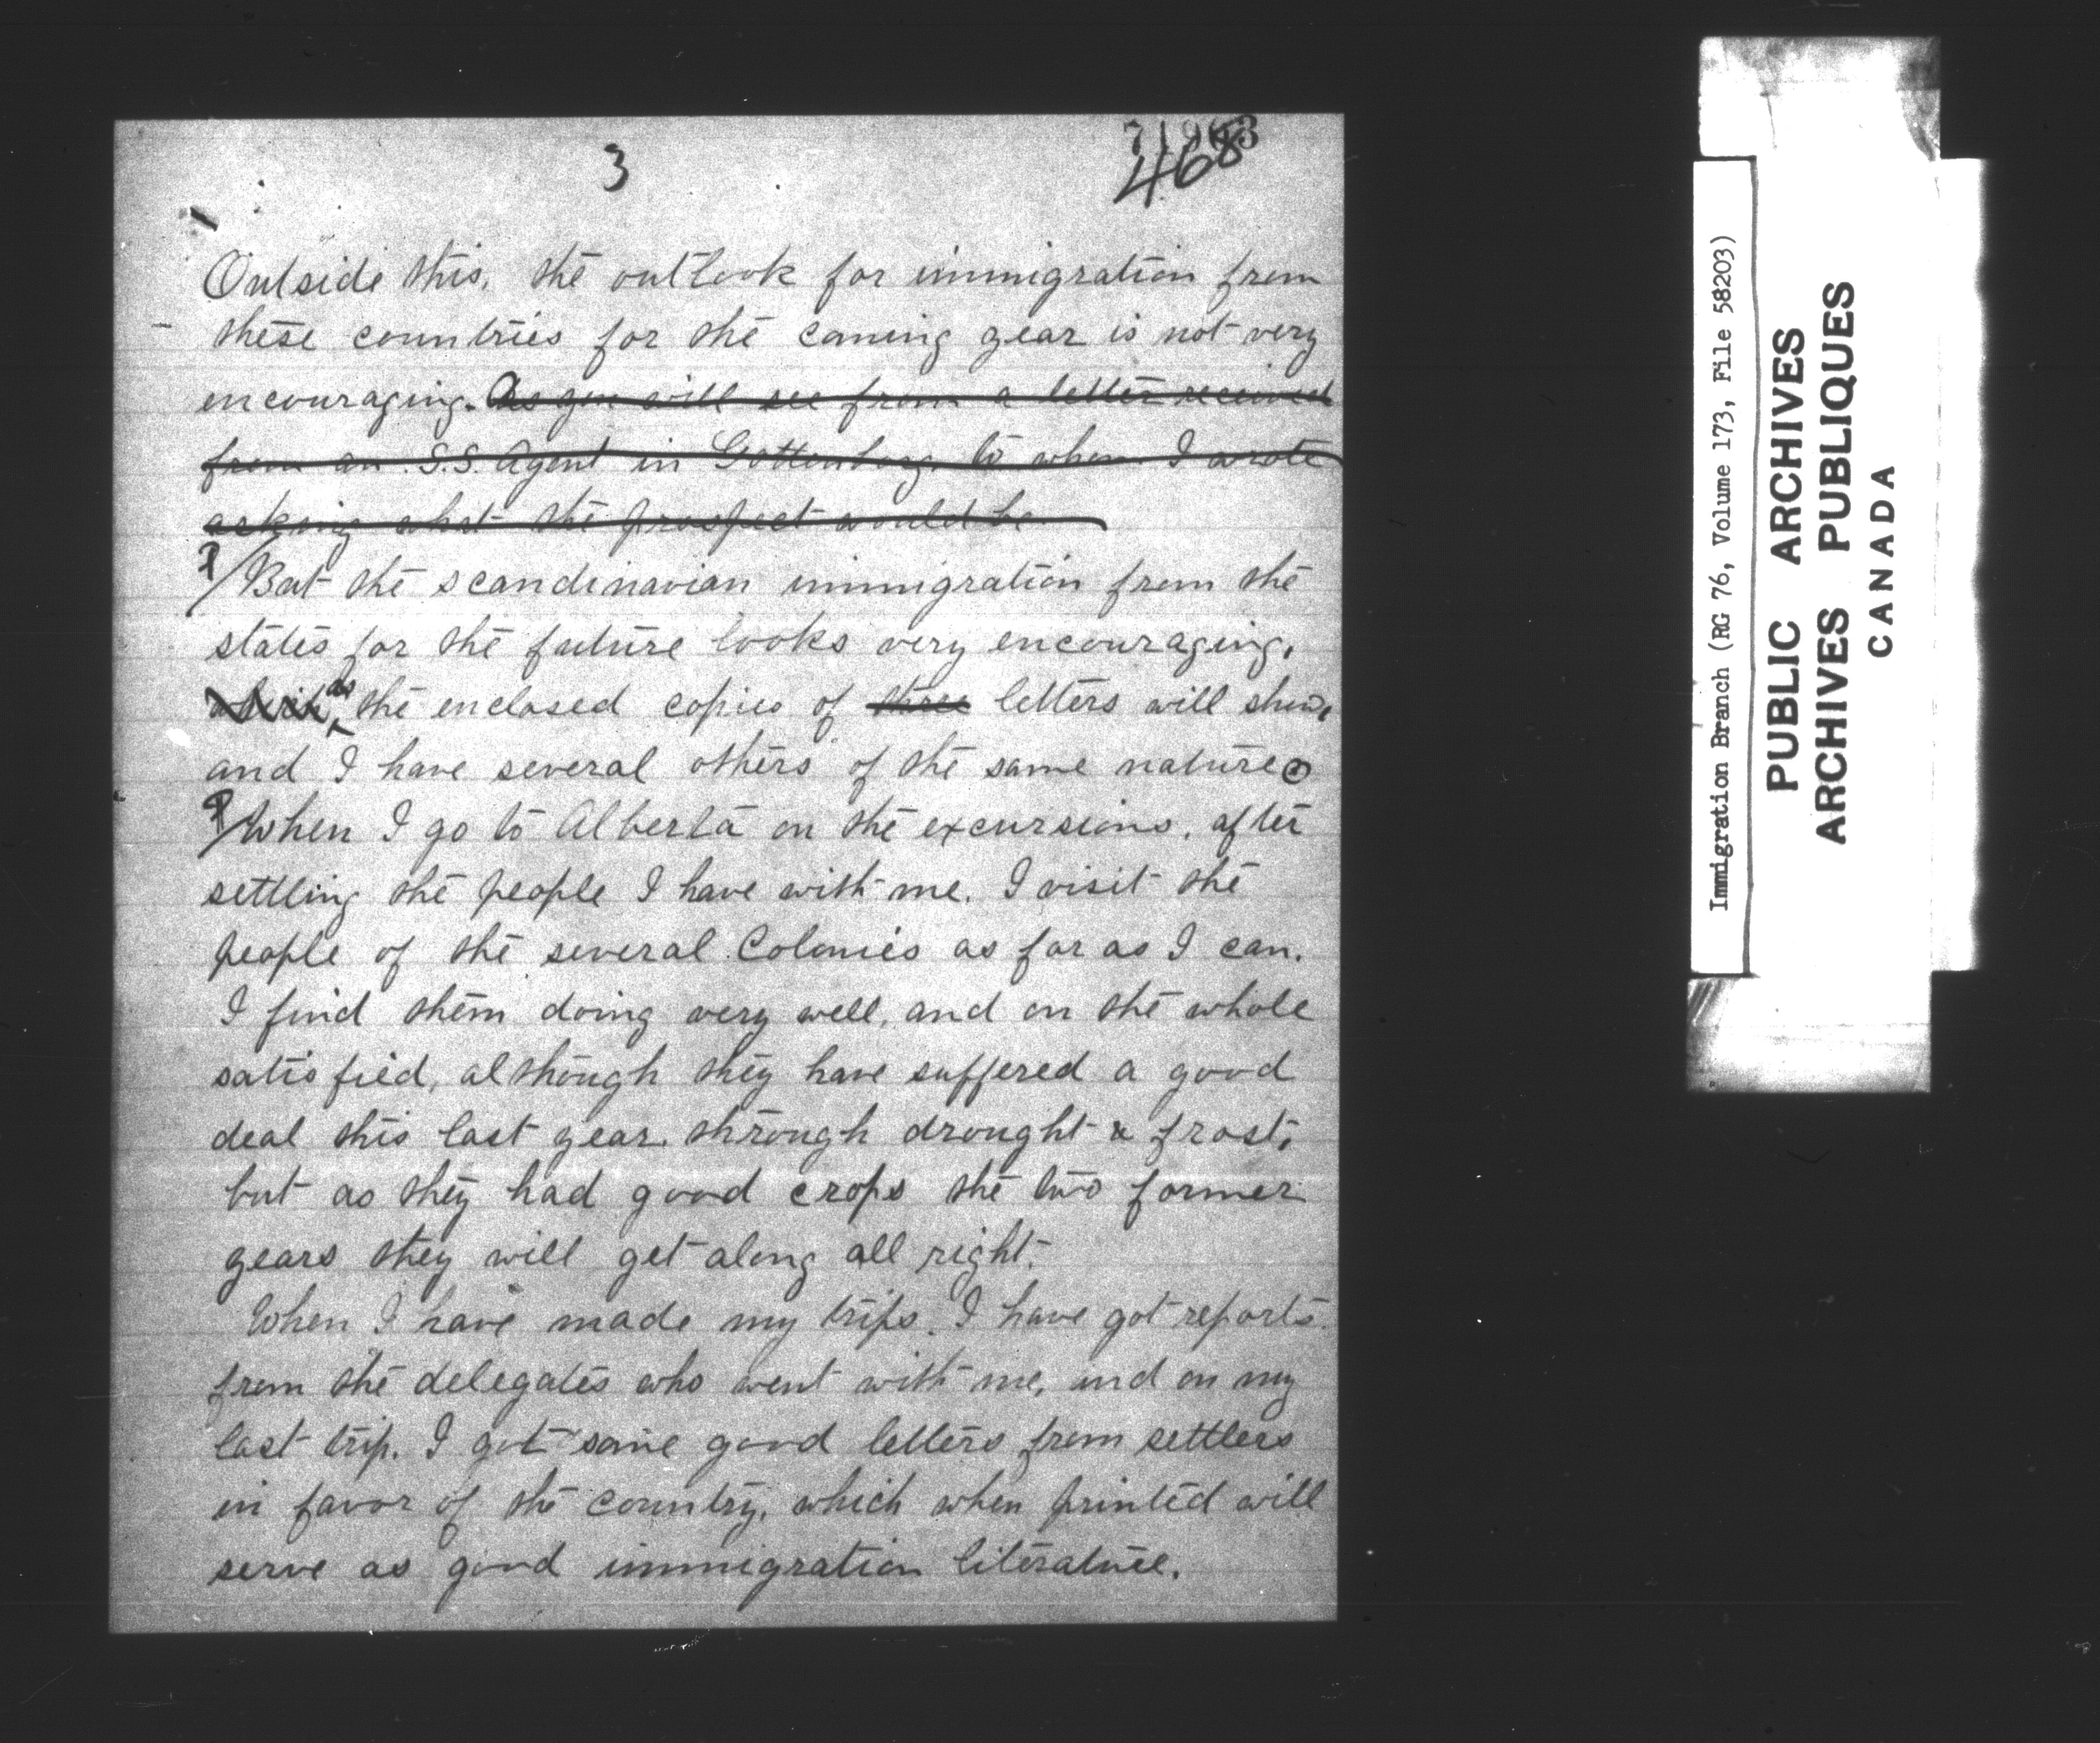 3
468
Outside this, the outlook for immigration from
these countries for the coming year is not very
encouraging. As you will see from a letter received
from an S.S. Agent in Gottenborg to whom I wrote
asking what the prospect would be
But the scandinavian immigration from the
states for the future looks very encouraging,
as the enclosed copies of three letters will show,
and I have several others of the same nature
When I go to Alberta on the excursions, after
settling the people I have with me. I visit the
people of the several Colonies as far as I can.
I find them doing very well, and on the whole
satisfied, although they have suffered a good
deal this last year through drought & frost,
but as they had good crops the two former
years they will get along all right.
When I have made my trips. I have got reports
from the delegates who went with me, and on my
last trip. I got some good letters from settlers
in favor of the country, which when printed will
serve as good immigration literature.
Immigration Branch (RG 76, Volume 173, File 58203)
PUBLIC ARCHIVES
ARCHIVES PUBLIQUES
CANADA